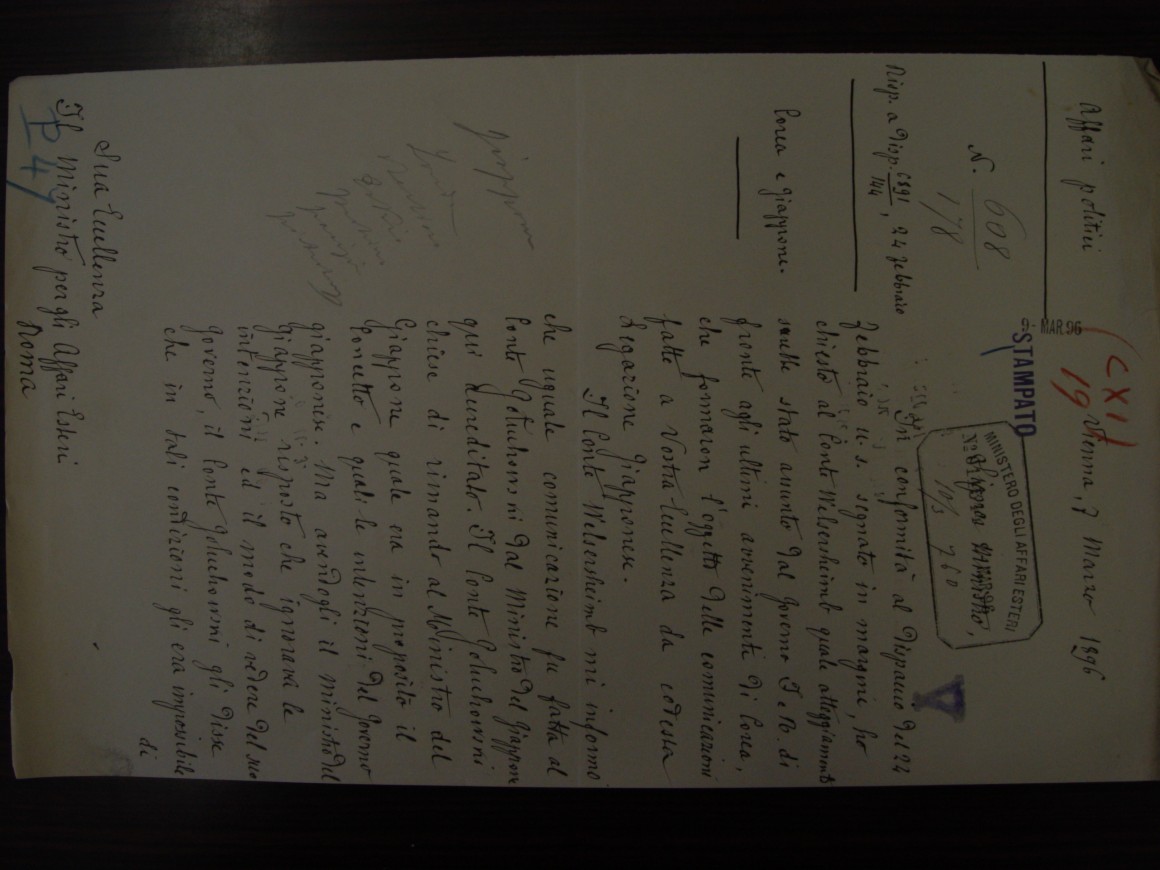 Affari politici
(CXI)
19
Vienna, 7 Marzo 1896
9 - MAR. 96
STAMPATO
N. 608
178
MINISTERO DEGLI AFFARI ESTERI
10/3 760
Risp. a Disp. 6891/144, 24 febbraio
Corea e Giappone.
In conformità al Dispaccio del 24
Febbraio u. s. segnato in margine, ho
chiesto al Conte Welsersheimb quale atteggiamento
sarebbe stato assunto dal Governo I. e R. di
fronte agli ultimi avvenimenti di Corea,
che formaron l'oggetto delle comunicazioni
fatte a Vostra Eccellenza da codesta
Legazione Giapponese.
Il Conte Welsersheimb mi informò
che uguale comunicazione fu fatta al
Conte Goluchowski dal Ministro del Giappone
qui accreditato. Il Conte Goluchowski
chiese di rimando al Ministro del
Giappone quale era in proposito il
concetto e quali le intenzioni del Governo
giapponese. Ma avendogli il ministro del
Giappone risposto che ignorava le
intenzioni ed il modo di vedere del suo
Governo, il Conte Goluchowski gli disse
che in tali condizioni gli era impossibile
di
Giappone
Londra
Berlino
Parigi
Sua Eccellenza
Il Ministro per gli Affari Esteri
Roma
P 4